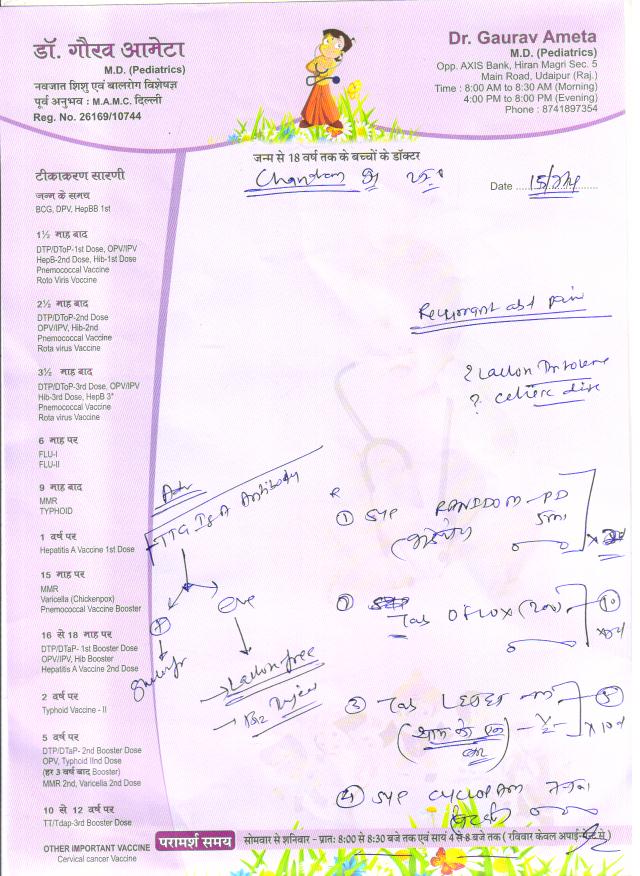 डॉ. गौरव आमेटा
M.D. (Pediatrics)
नवजात शिशु एवं बालरोग विशेषज्ञ
पूर्व अनुभव : M.A.M.C. दिल्ली
Reg. No. 26169/10744
Dr. Gaurav Ameta
M.D. (Pediatrics)
Opp. AXIS Bank, Hiran Magri Sec. 5
Main Road, Udaipur (Raj.)
Time : 8:00 AM to 8:30 AM (Morning)
4:00 PM to 8:00 PM (Evening)
Phone : 8741897354
जन्म से 18 वर्ष तक के बच्चों के डॉक्टर
Date
टीकाकरण सारणी
जन्म के समय
BCG, DPV, HepBB 1st
1½ माह बाद
DTP/DToP-1st Dose, OPV/IPV
HepB-2nd Dose, Hib-1st Dose
Pnemococcal Vaccine
Roto Viris Voccine
2½ माह बाद
DTP/DToP-2nd Dose
OPV/IPV, Hib-2nd
Pnemococcal Vaccine
Rota virus Vaccine
3½ माह बाद
DTP/DToP-3rd Dose, OPV/IPV
Hib-3rd Dose, HepB 3*
Pnemococcal Vaccine
Rota virus Vaccine
6 माह पर
FLU-I
FLU-II
9 माह बाद
MMR
TYPHOID
1 वर्ष पर
Hepatitis A Vaccine 1st Dose
15 माह पर
MMR
Varicella (Chickenpox)
Pnemococcal Vaccine Booster
16 से 18 माह पर
DTP/DTaP- 1st Booster Dose
OPV/IPV, Hib Booster
Hepatitis A Vaccine 2nd Dose
2 वर्ष पर
Typhoid Vaccine - II
5 वर्ष पर
DTP/DTaP- 2nd Booster Dose
OPV, Typhoid IInd Dose
(हर 3 वर्ष बाद Booster)
MMR 2nd, Varicella 2nd Dose
10 से 12 वर्ष पर
TT/Tdap-3rd Booster Dose
OTHER IMPORTANT VACCINE
Cervical cancer Vaccine
abd pain
? 
? celiac
Adv
TTG IgA Antibody
free
B12
R
① syp RANIDOM-PD
5ml
② Tab OFLOX (200)
③ Tab
④ syp CYCLOPAM
परामर्श समय
सोमवार से शनिवार - प्रातः 8:00 से 8:30 बजे तक एवं सायं 4 से 8 बजे तक ( रविवार केवल अपाईन्मेंट से )